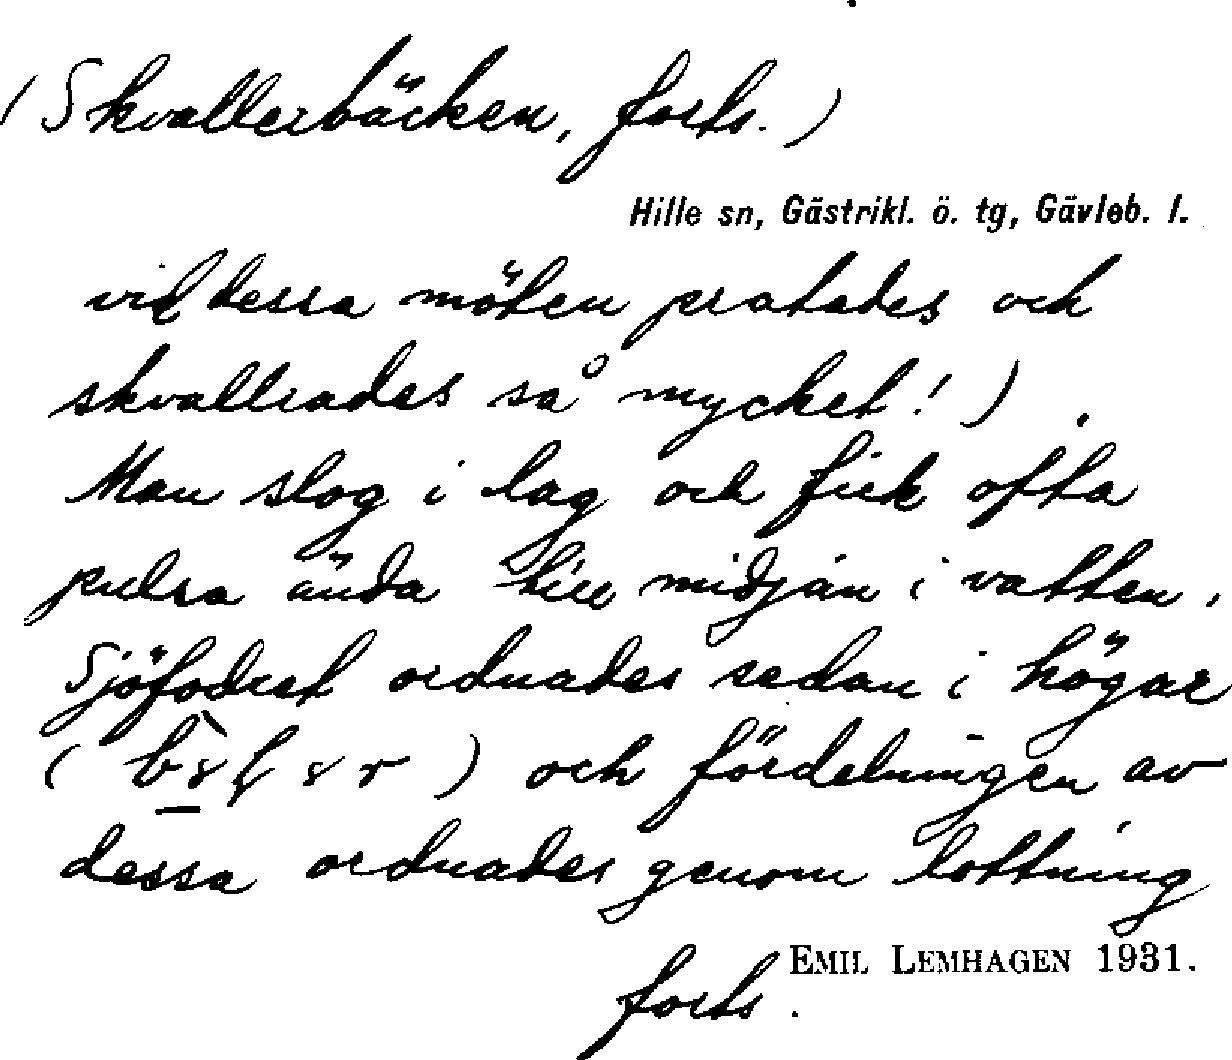 (Skvallerbäcken, forts.)
Hille sn, Gästrikl. ö. tg, Gävleb. l.
vid dessa möten pratades och
skvallrades så mycket!).
Man slog i lag och fick ofta
pulsa ända till midjan i vatten.
Sjöfodret ordnades sedan i högar
( ) och fördelningen av
dessa ordnades genom lottning
forts.
EMIL LEMHAGEN 1931.